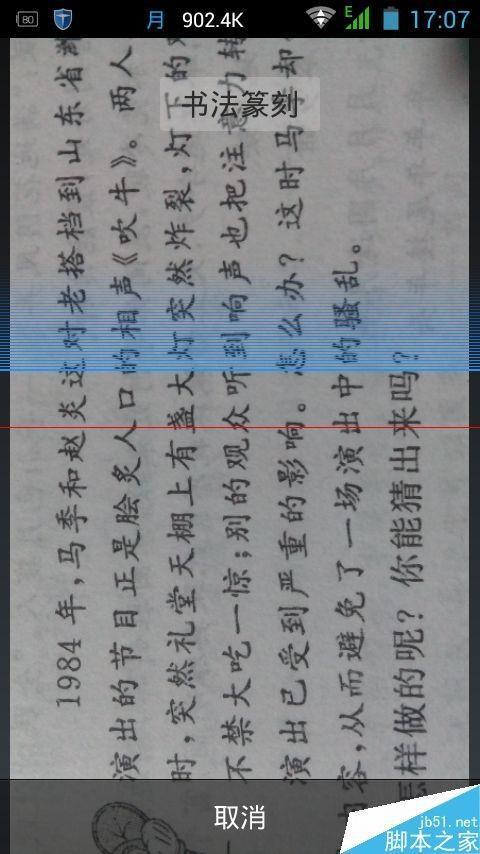 80 月 902.4K E 17:07
书法篆刻
1984年，马季和赵炎这对老搭档到山东省
演出的节目正是脍炙人口的相声《吹牛》。两人
时，突然礼堂天棚上有盏大灯突然炸裂，灯下的
不禁大吃一惊；别的观众听到响声也把注意力转
演出已受到严重的影响。怎么办？这时马季却
容，从而避免了一场演出中的骚乱。
怎样做的呢？你能猜出来吗？
取消
jb51.net
脚本之家